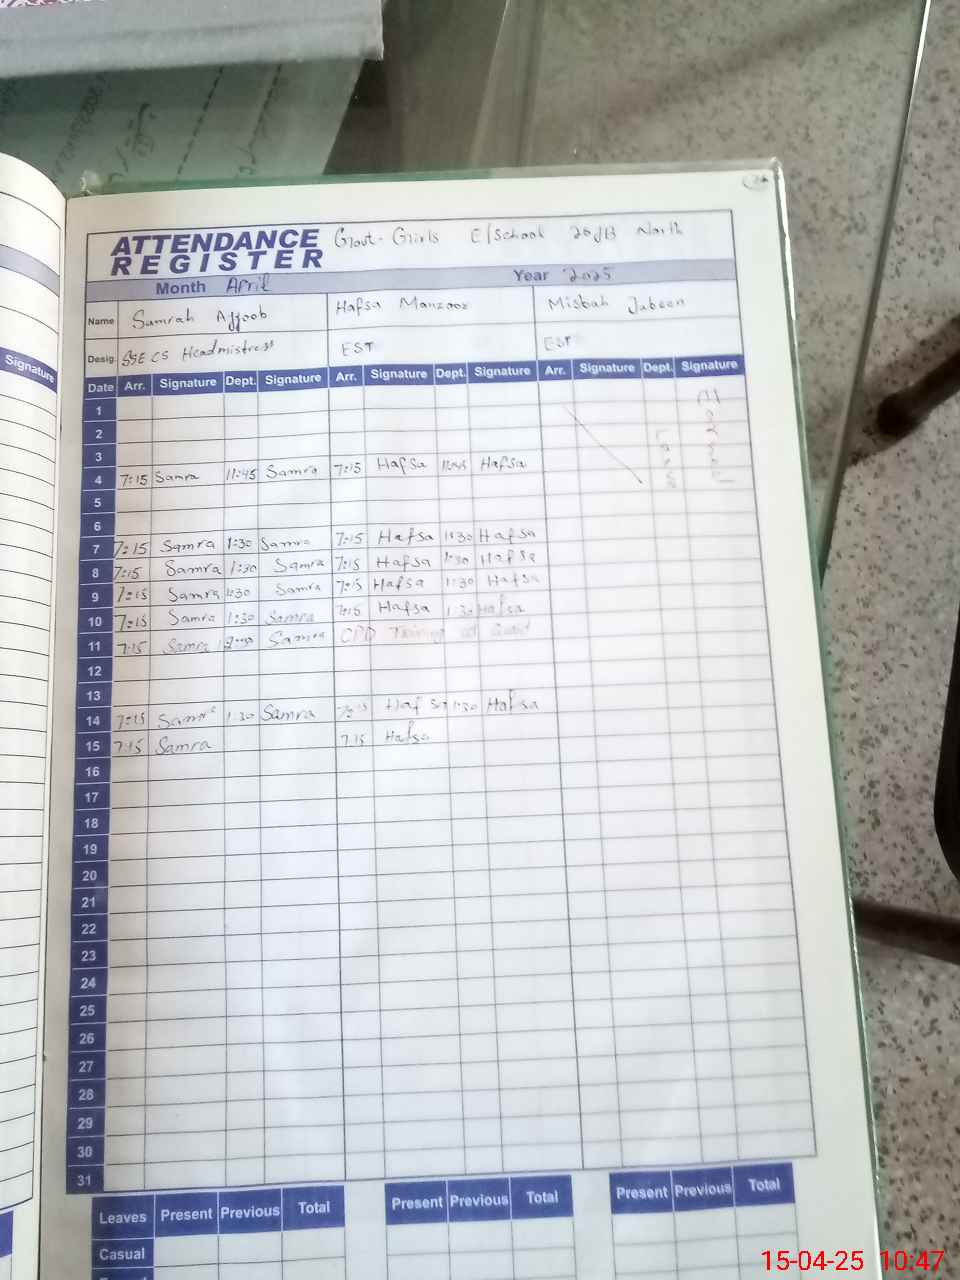 ATTENDANCE
REGISTER
Govt- Girls E/School 20JB North
Month April Year 2025
Name Samrah Ayyoob Hafsa Manzoor Misbah Jabeen
Desig. SSE CS Headmistress EST EST
Signature
Date Arr. Signature Dept. Signature Arr. Signature Dept. Signature Arr. Signature Dept. Signature
1
2
3
4 7:15 Samra 11:45 Samra 7:15 Hafsa 11:45 Hafsa
5
6
7 7:15 Samra 1:30 Samra 7:15 Hafsa 1:30 Hafsa
8 7:15 Samra 1:30 Samra 7:15 Hafsa 1:30 Hafsa
9 7:15 Samra 1:30 Samra 7:15 Hafsa 1:30 Hafsa
10 7:15 Samra 1:30 Samra 7:15 Hafsa 1:30 Hafsa
11 7:15 Samra Samra CPD Training at
12
13
14 7:15 Samra 1:30 Samra 7:15 Hafsa 1:30 Hafsa
15 7:15 Samra 7:15 Hafsa
16
17
18
19
20
21
22
23
24
25
26
27
28
29
30
31
Leaves Present Previous Total Present Previous Total Present Previous Total
Casual
15-04-25 10:47